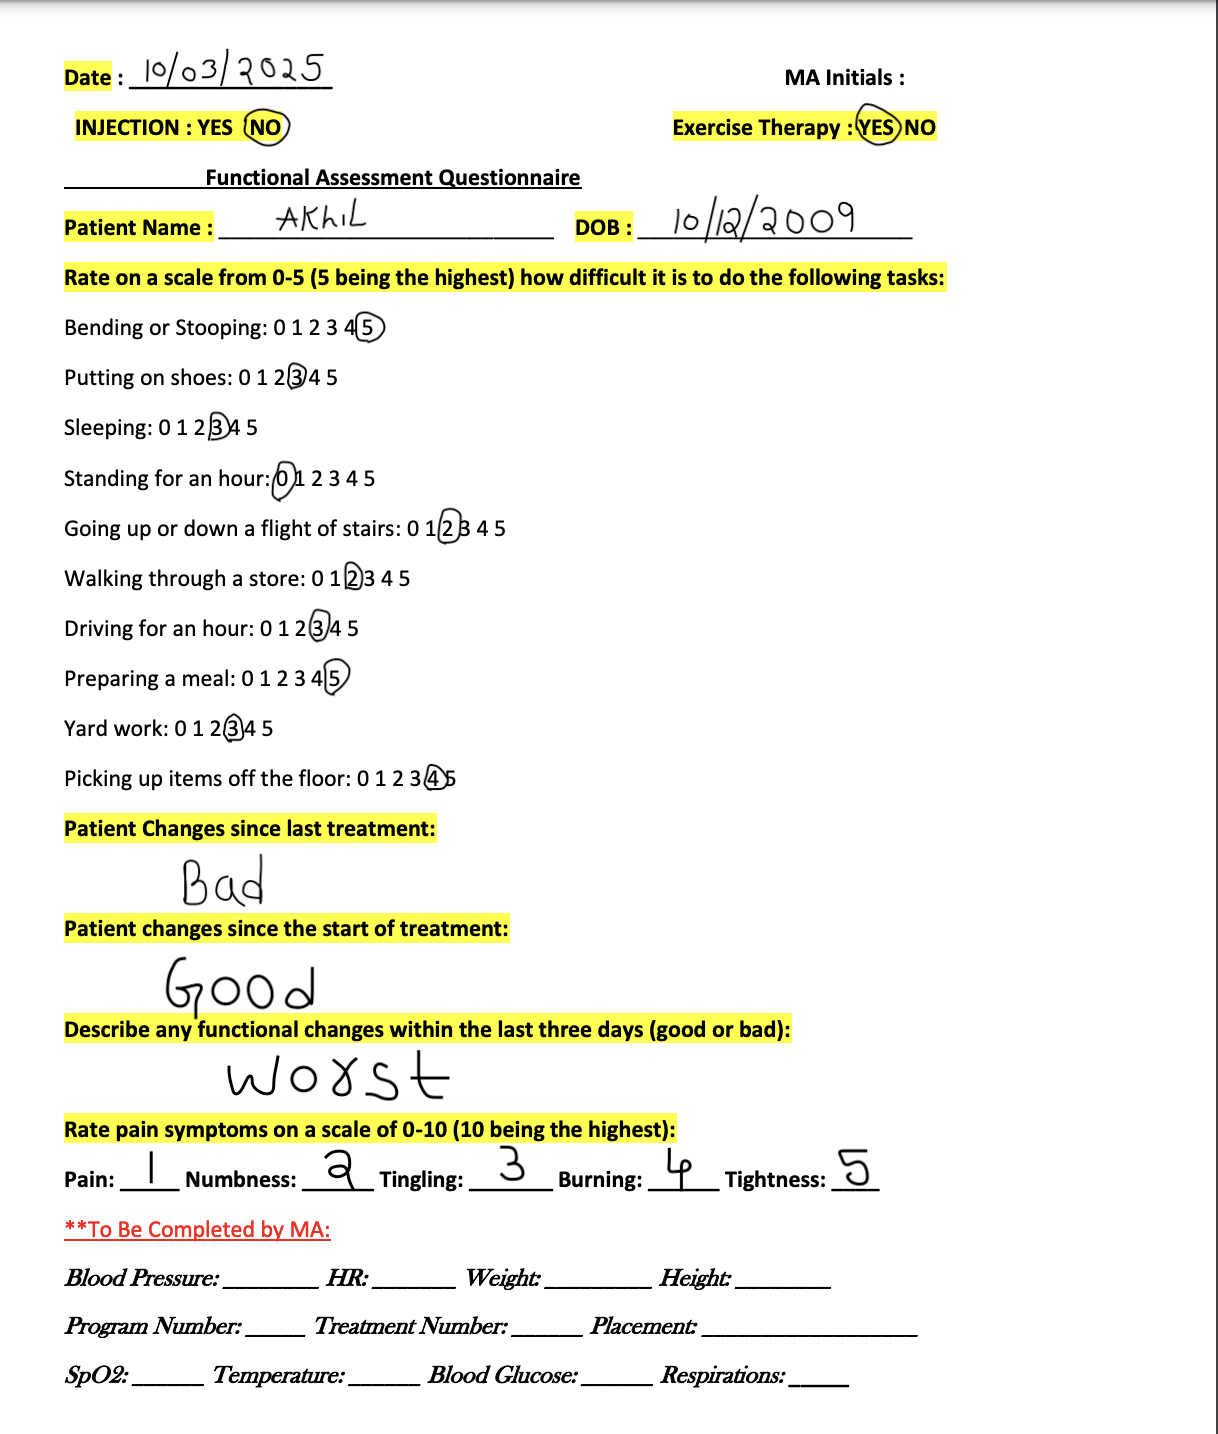 Date : 10/03/2025 MA Initials :
INJECTION : YES NO Exercise Therapy : YES NO
Functional Assessment Questionnaire
Patient Name : AKhiL DOB : 10/12/2009
Rate on a scale from 0-5 (5 being the highest) how difficult it is to do the following tasks:
Bending or Stooping: 0 1 2 3 4 5
Putting on shoes: 0 1 2 3 4 5
Sleeping: 0 1 2 3 4 5
Standing for an hour: 0 1 2 3 4 5
Going up or down a flight of stairs: 0 1 2 3 4 5
Walking through a store: 0 1 2 3 4 5
Driving for an hour: 0 1 2 3 4 5
Preparing a meal: 0 1 2 3 4 5
Yard work: 0 1 2 3 4 5
Picking up items off the floor: 0 1 2 3 4 5
Patient Changes since last treatment:
Bad
Patient changes since the start of treatment:
Good
Describe any functional changes within the last three days (good or bad):
Worst
Rate pain symptoms on a scale of 0-10 (10 being the highest):
Pain: 1 Numbness: 2 Tingling: 3 Burning: 4 Tightness: 5
**To Be Completed by MA:
Blood Pressure: ________ HR: _______ Weight: _________ Height: ________
Program Number: _____ Treatment Number: ______ Placement: __________________
SpO2: ______ Temperature: ______ Blood Glucose: ______ Respirations: _____